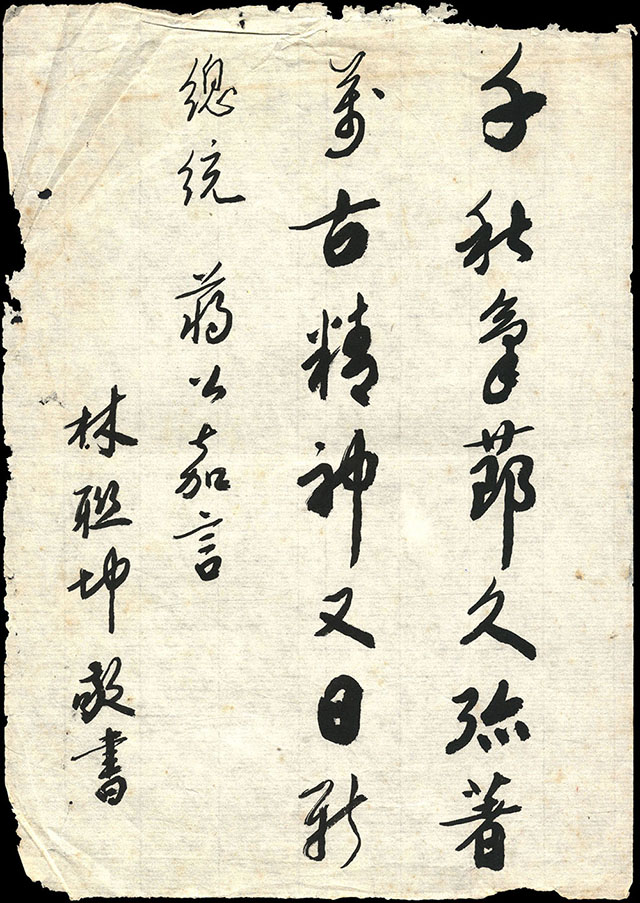 千秋氣節久彌著
萬古精神又日新
總統 蔣公嘉言
林聯坤敬書